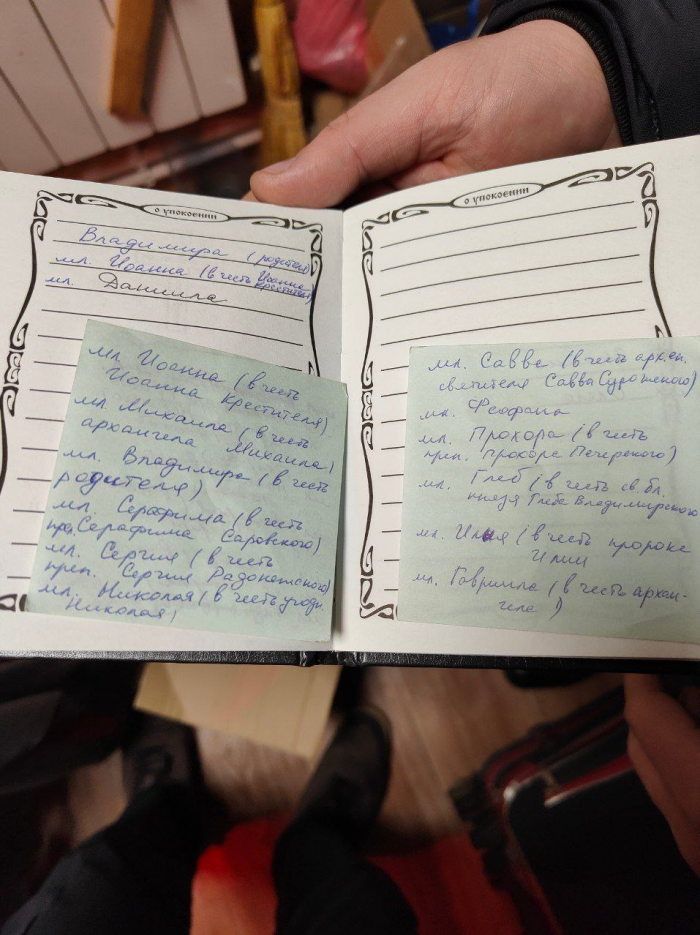 о упокоении
Владимира (родителя)
мл. Иоанна (в честь Иоанна
Крестителя)
мл. Даниила
мл. Иоанна (в честь
Иоанна Крестителя)
мл Михаила (в честь
архангела Михаила)
мл. Владимира (в честь
родителя)
мл. Серафима (в честь
преп. Серафима Саровского)
мл. Сергия (в честь
преп. Сергия Радонежского)
мл. Николая (в честь угодн.
Николая)
о упокоении
мл. Савве (в честь архиеп.
святителя Саввы Сурожского)
мл. Феофана
мл. Прохора (в честь
преп. Прохора Печерского)
мл. Глеб (в честь св. бл.
князя Глеба Владимирского
мл. Илия (в честь пророка
Илии
мл. Гавриила (в честь архан-
гела)